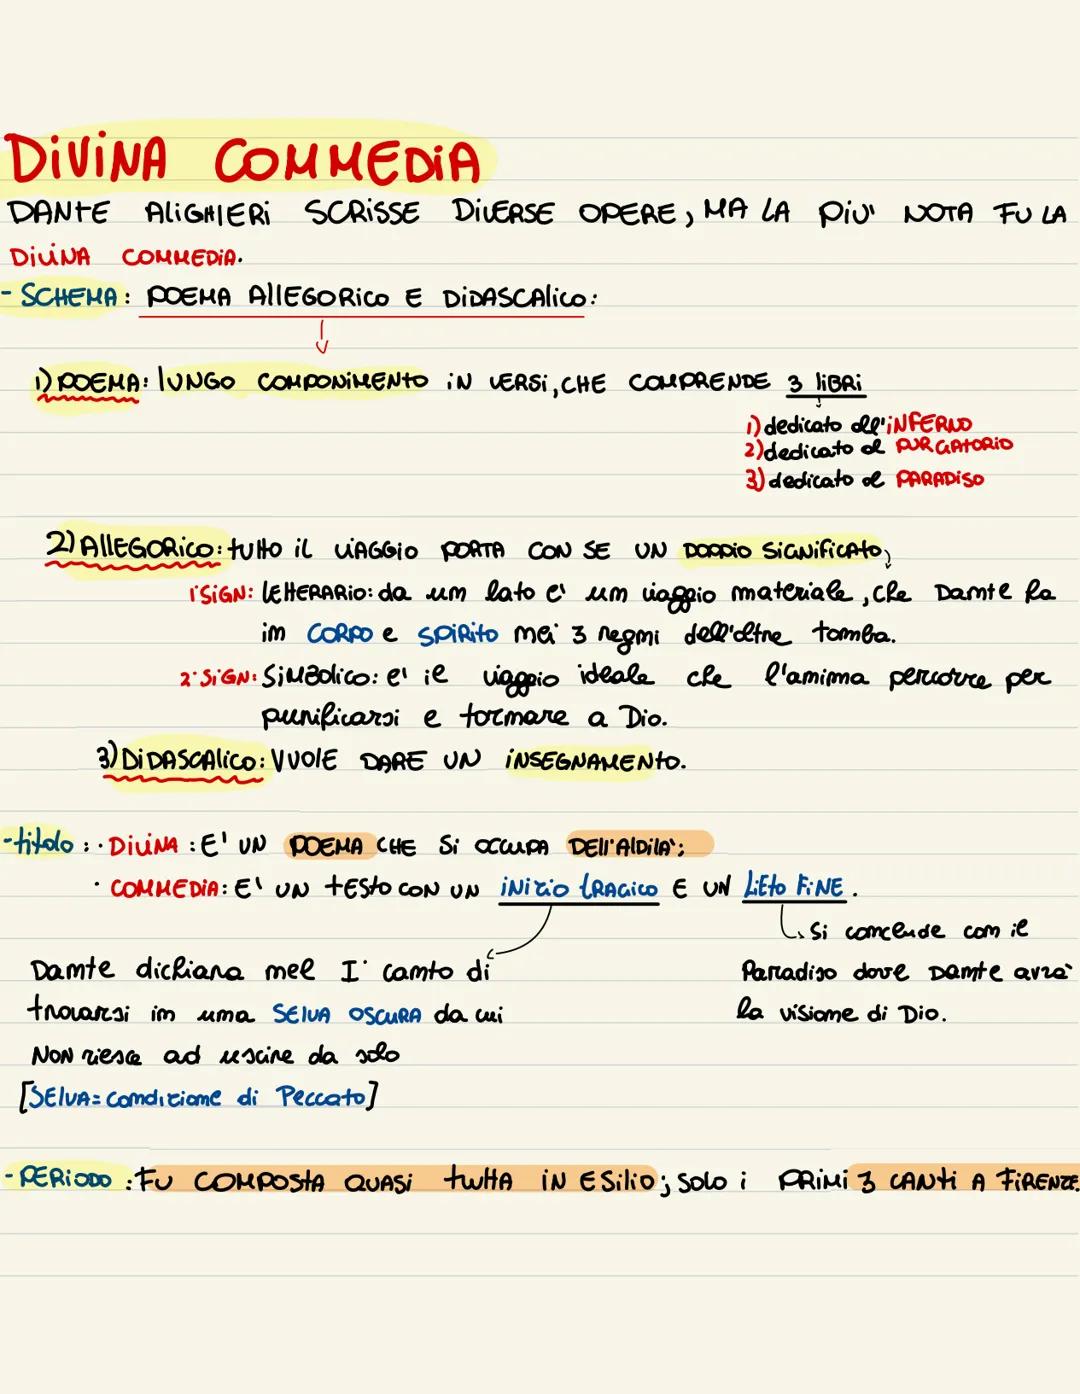 DIVINA COMMEDIA
DANTE ALIGHIERI SCRISSE DIVERSE OPERE, MA LA PIU' NOTA FU LA
DIVINA COMMEDIA.
- SCHEMA: POEMA ALLEGORICO E DIDASCALICO:
1) POEMA: LUNGO COMPONIMENTO IN VERSI, CHE COMPRENDE 3 LIBRI
1) dedicato all'INFERNO
2) dedicato al PURGATORIO
3) dedicato al PARADISO
2) ALLEGORICO: TUTTO IL VIAGGIO PORTA CON SE UN DOPPIO SIGNIFICATO,
1° SIGN: LETTERARIO: da um lato e' um viaggio materiale, che Damte fa
im CORPO e SPIRITO mei 3 regmi dell'oltre tomba.
2° SIGN: SIMBOLICO: e' il viaggio ideale che l'amima percorre per
purificarsi e tormare a Dio.
3) DIDASCALICO: VUOLE DARE UN INSEGNAMENTO.
- titolo : · DIVINA : E' UN POEMA CHE SI OCCUPA DELL'ALDILA';
· COMMEDIA: E' UN TESTO CON UN INIZIO TRAGICO E UN LIETO FINE.
Si comclude com il
Damte dichiara mel I° camto di
Paradiso dove Damte avrà
trovarsi im uma SELVA OSCURA da cui
la visiome di Dio.
NON riesce ad uscire da solo
[SELVA= comdiziome di Peccato]
- PERIODO : FU COMPOSTA QUASI TUTTA IN ESILIO; SOLO i PRIMI 3 CANTI A FIRENZE.